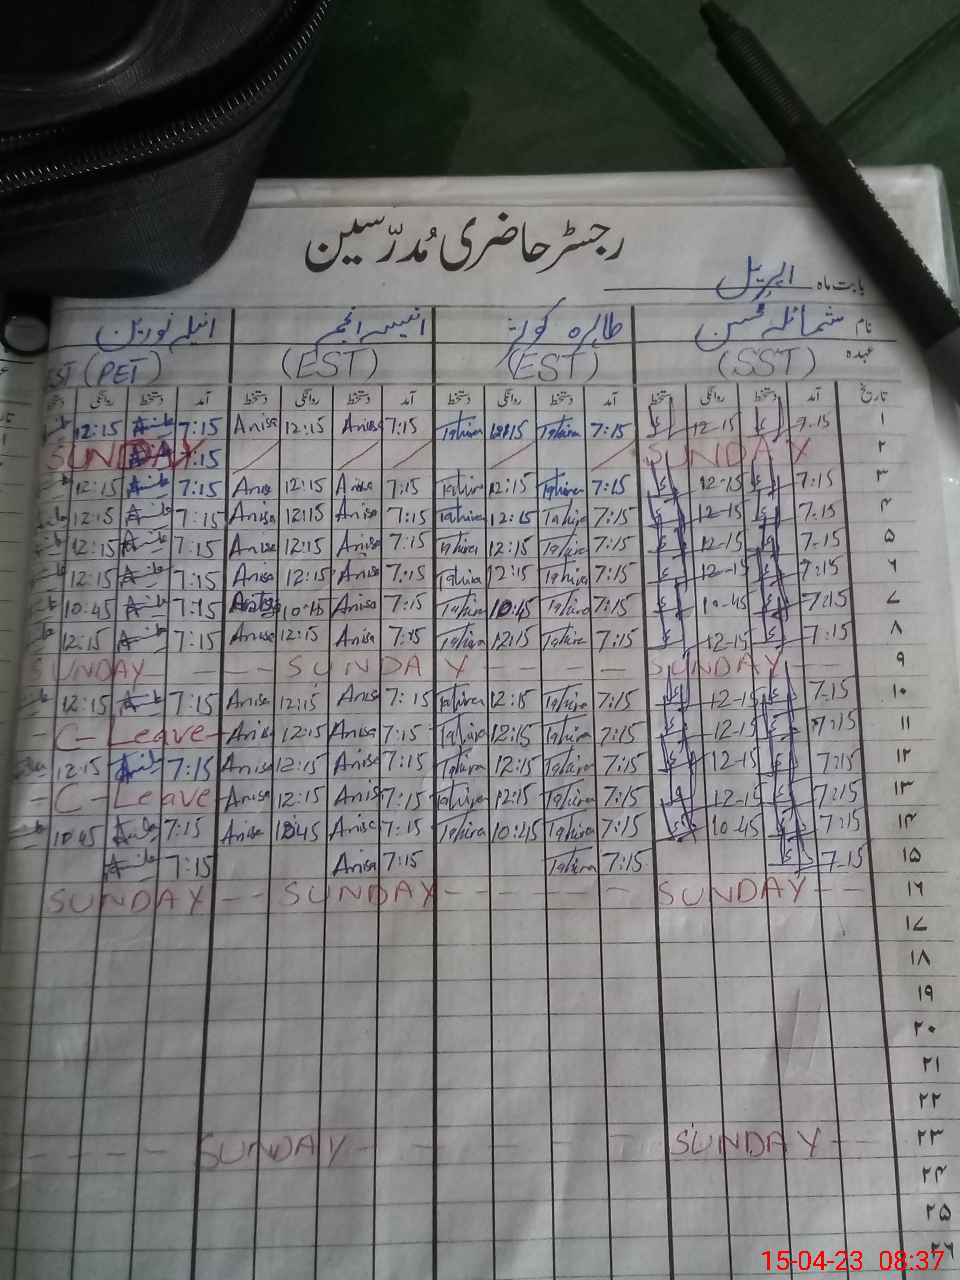 رجسٹر حاضری مُدرّسین
بابت ماہ اپریل
نام شمائلہ محسن طاہرہ کوثر انیسہ انجم انیلہ نورین
عہدہ (SST) (EST) (EST) (PET)
تاریخ آمد دستخط روانگی دستخط آمد دستخط روانگی دستخط آمد دستخط روانگی دستخط آمد دستخط روانگی
۱ 7.15 12-15 7:15 Tahira 12:15 Tahira 7:15 Anisa 12:15 Anisa 7:15 12:15
۲ SUNDAY 7:15 SUNDAY
۳ 7:15 12-15 7:15 Tahira 12:15 Tahira 7:15 Anisa 12:15 Anisa 7:15 12:15
۴ 7.15 12-15 7:15 Tahira 12:15 Tahira 7:15 Anisa 12:15 Anisa 7:15 12:15
۵ 7-15 12-15 7:15 Tahira 12:15 Tahira 7:15 Anisa 12:15 Anisa 7:15 12:15
۶ 7:15 12-15 7:15 Tahira 12:15 Tahira 7:15 Anisa 12:15 Anisa 7:15 12:15
۷ 7:15 10-45 7:15 Tahira 10:45 Tahira 7:15 Anisa 7:15 10:45
۸ 7:15 12-15 7:15 Tahira 12:15 Tahira 7:15 Anisa 12:15 Anisa 7:15 12:15
۹ SUNDAY - - - - SUNDAY - - - - SUNDAY
۱۰ 7-15 12-15 7:15 Tahira 12:15 Tahira 7:15 Anisa 12:15 Anisa 7:15 12:15
۱۱ 7:15 12-15 7:15 Tahira 12:15 Tahira 7:15 Anisa 12:15 Anisa - C- Leave -
۱۲ 7:15 12-15 7:15 Tahira 12:15 Tahira 7:15 Anisa 12:15 Anisa 7:15 12:15
۱۳ 7:15 12-15 7:15 Tahira 12:15 Tahira 7:15 Anisa 12:15 Anisa - C- Leave
۱۴ 7:15 10-45 7:15 Tahira 10:45 Tahira 7:15 Anisa 10:45 Anisa 7:15 10:45
۱۵ 7-15 7:15 Tahira 7:15 Anisa 7:15
۱۶ SUNDAY - - SUNDAY - - - - - SUNDAY - -
۱۷
۱۸
۱۹
۲۰
۲۱
۲۲
۲۳ SUNDAY - - SUNDAY - - - -
۲۴
۲۵
۲۶
15-04-23 08:37